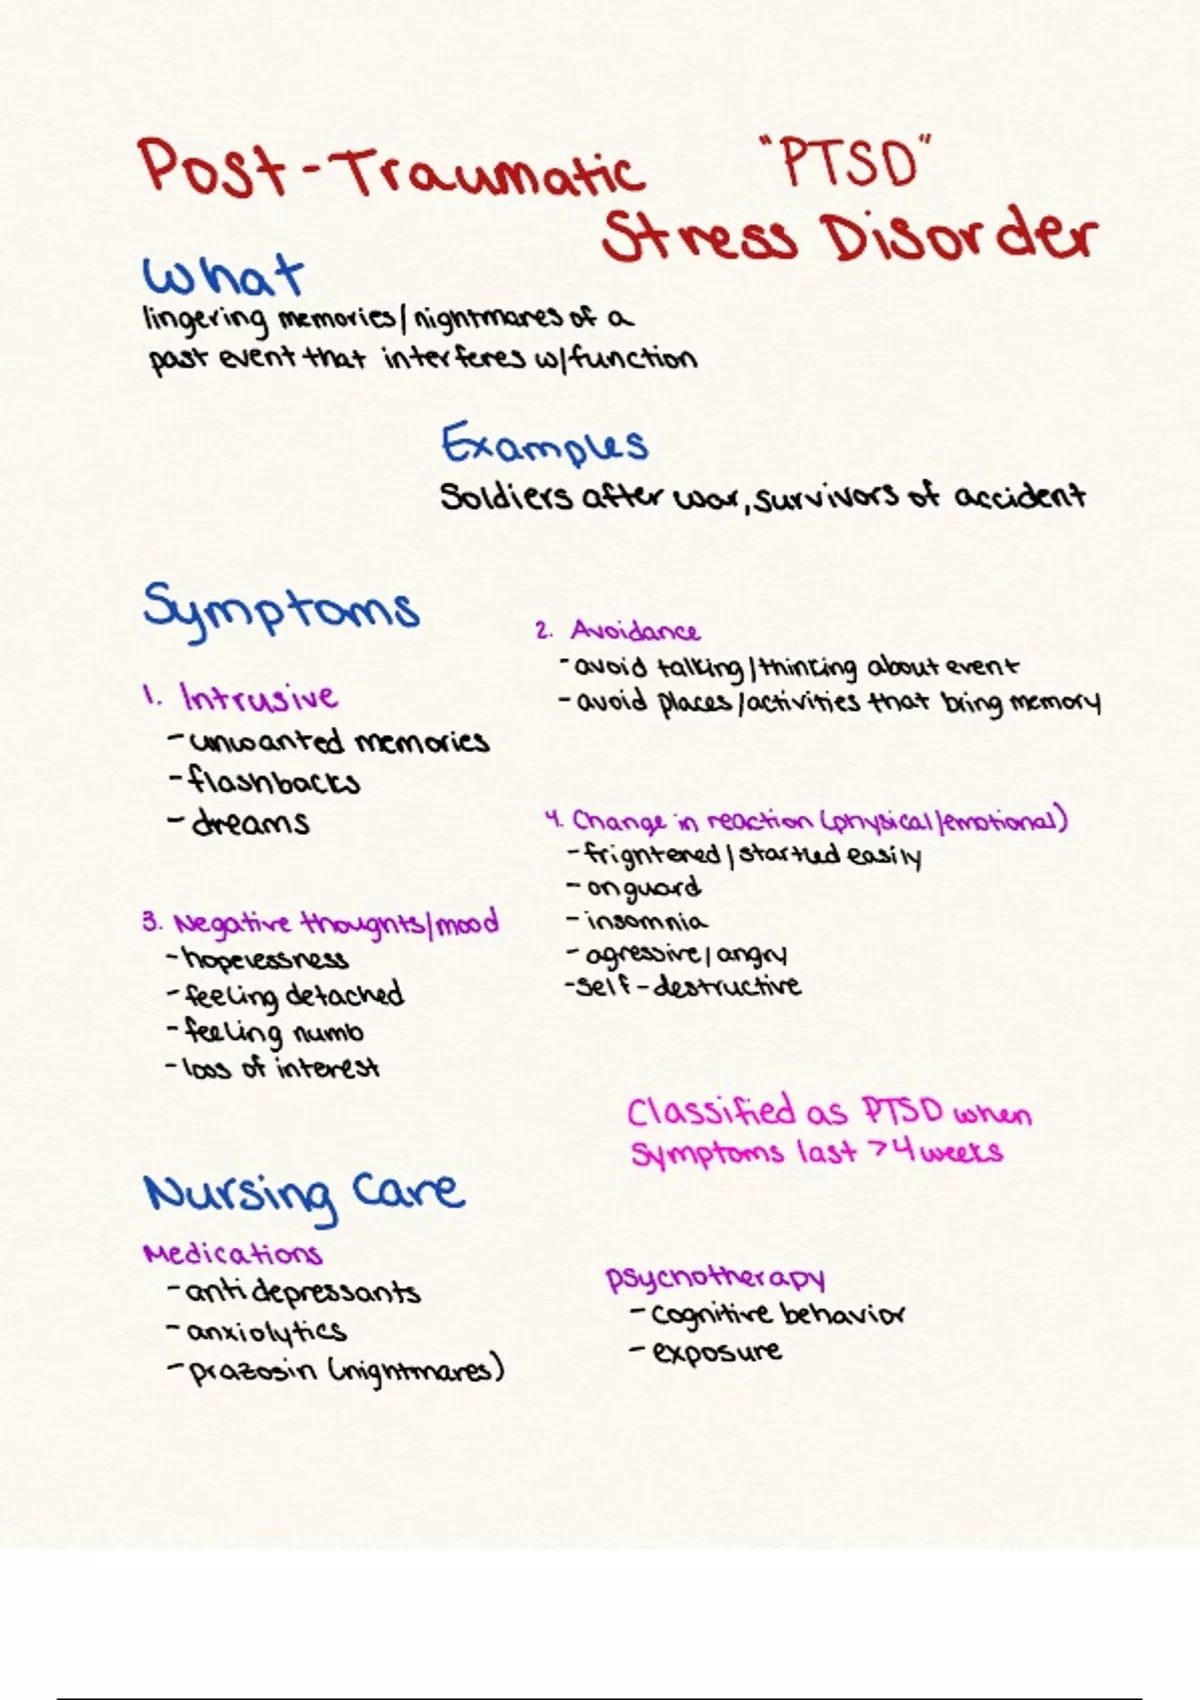 Post-Traumatic "PTSD"
Stress Disorder
What
lingering memories/nightmares of a
past event that interferes w/function
Examples
Soldiers after war, survivors of accident
Symptoms
1. Intrusive
-unwanted memories
-flashbacks
-dreams
2. Avoidance
-avoid talking/thinking about event
-avoid places/activities that bring memory
3. Negative thoughts/mood
-hopelessness
-feeling detached
-feeling numb
-loss of interest
4. Change in reaction (physical/emotional)
-frightened/startled easily
-on guard
-insomnia
-agressive/angry
-self-destructive
Classified as PTSD when
symptoms last >4 weeks
Nursing Care
Medications
-antidepressants
-anxiolytics
-prazosin (nightmares)
psychotherapy
-cognitive behavior
-exposure